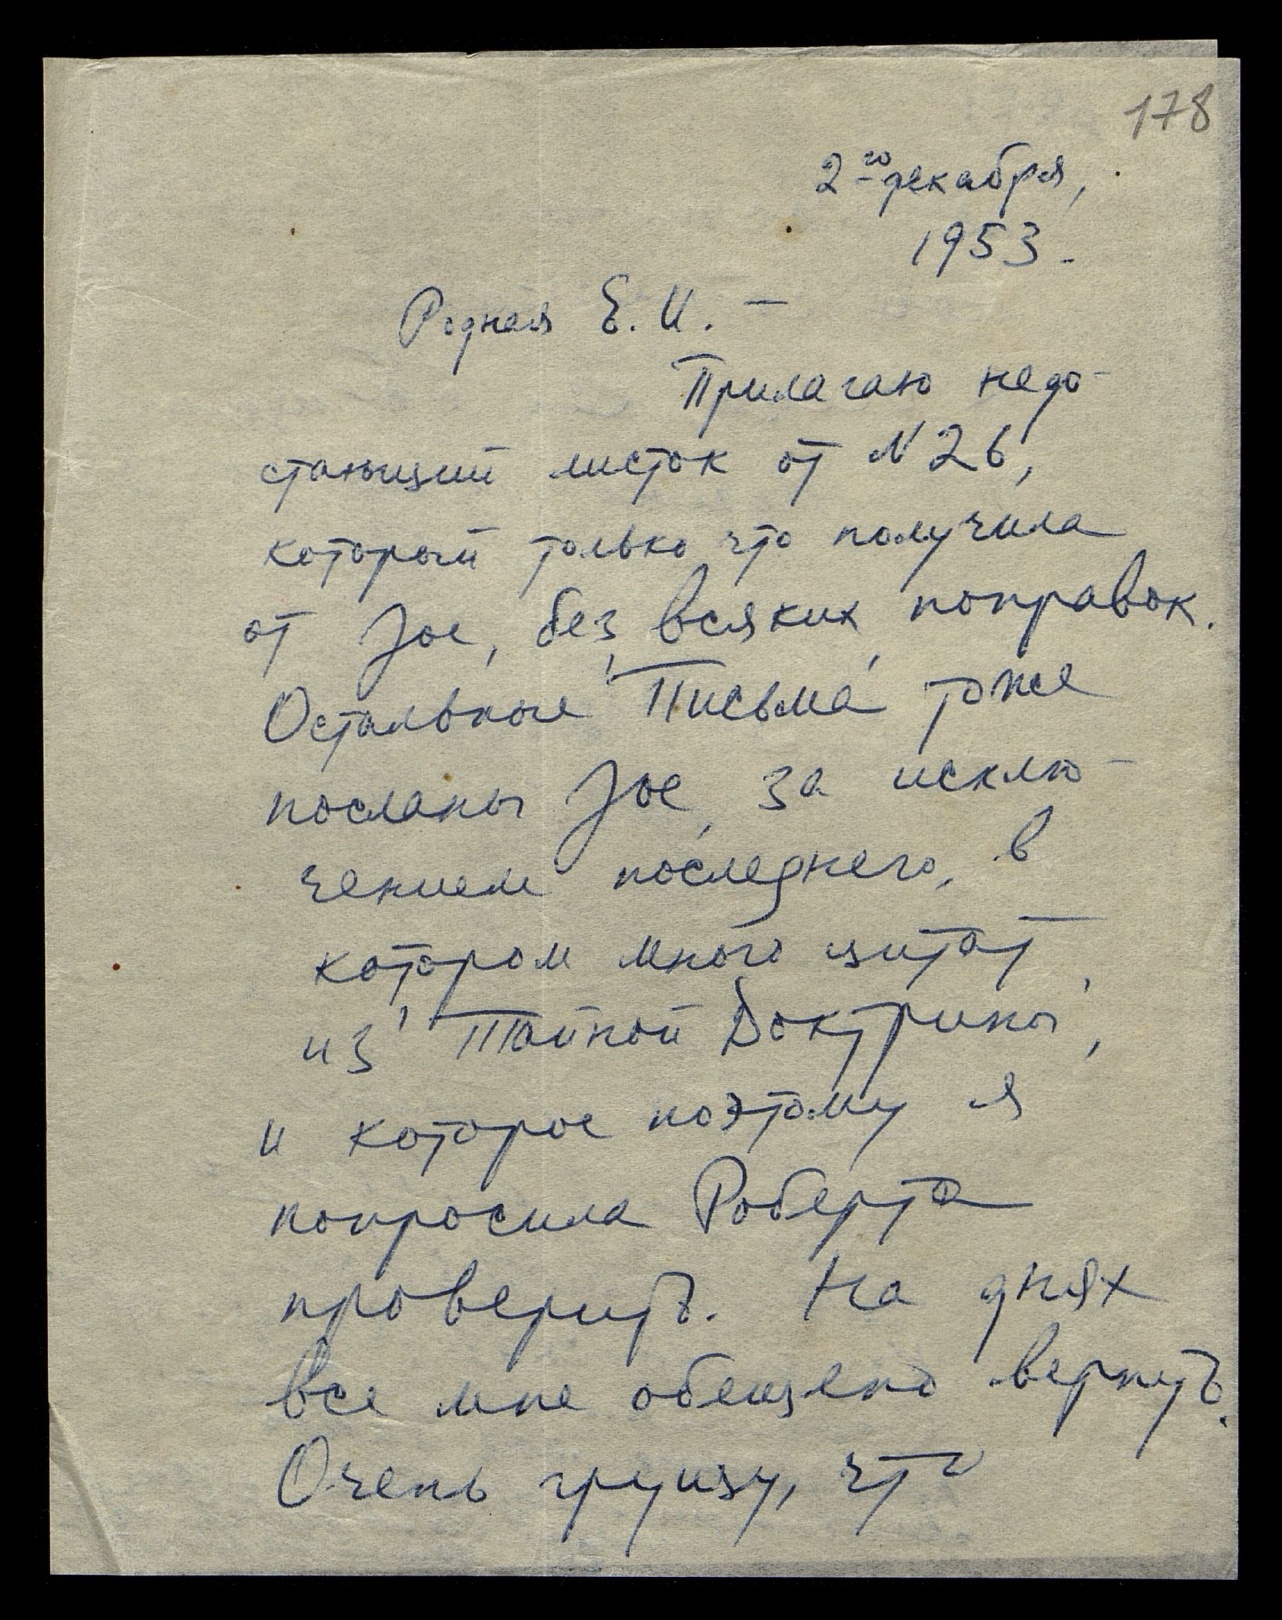 178
2го декабря,
1953.
Родная Е. И. —
Прилагаю недо-
стающий листок от N 26,
который только что получила
от Joe, без всяких поправок.
Остальные "Письма" тоже
посланы Joe, за исклю-
чением последнего, в
котором много цитат
из "Тайной Доктрины",
и которое поэтому я
попросила Роберта
проверить. На днях
все мне обещено вернуть.
Очень грущу, что